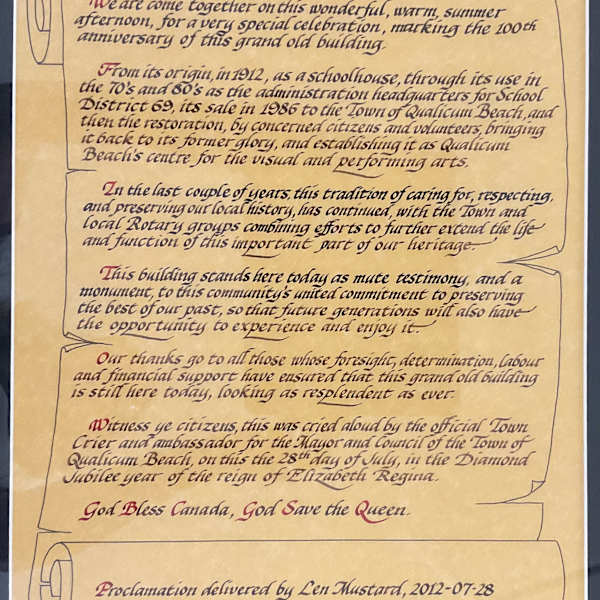 We are come together on this wonderful, warm, summer
afternoon, for a very special celebration, marking the 100th
anniversary of this grand old building.
From its origin, in 1912, as a schoolhouse, through its use in
the 70's and 80's as the administration headquarters for School
District 69, its sale in 1986 to the Town of Qualicum Beach, and
then the restoration, by concerned citizens and volunteers, bringing
it back to its former glory, and establishing it as Qualicum
Beach's centre for the visual and performing arts.
In the last couple of years, this tradition of caring for, respecting,
and preserving our local history, has continued, with the Town and
local Rotary groups combining efforts to further extend the life
and function of this important part of our heritage.
This building stands here today as mute testimony, and a
monument, to this community's united commitment to preserving
the best of our past, so that future generations will also have
the opportunity to experience and enjoy it.
Our thanks go to all those whose foresight, determination, labour
and financial support have ensured that this grand old building
is still here today, looking as resplendent as ever.
Witness ye citizens, this was cried aloud by the official Town
Crier and ambassador for the Mayor and Council of the Town of
Qualicum Beach, on this the 28th day of July, in the Diamond
Jubilee year of the reign of Elizabeth Regina.
God Bless Canada, God Save the Queen.
Proclamation delivered by Len Mustard, 2012-07-28